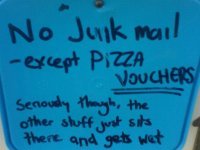 No Junk mail
-except PIZZA
VOUCHERS
Seriously though, the
other stuff just sits
there and gets wet